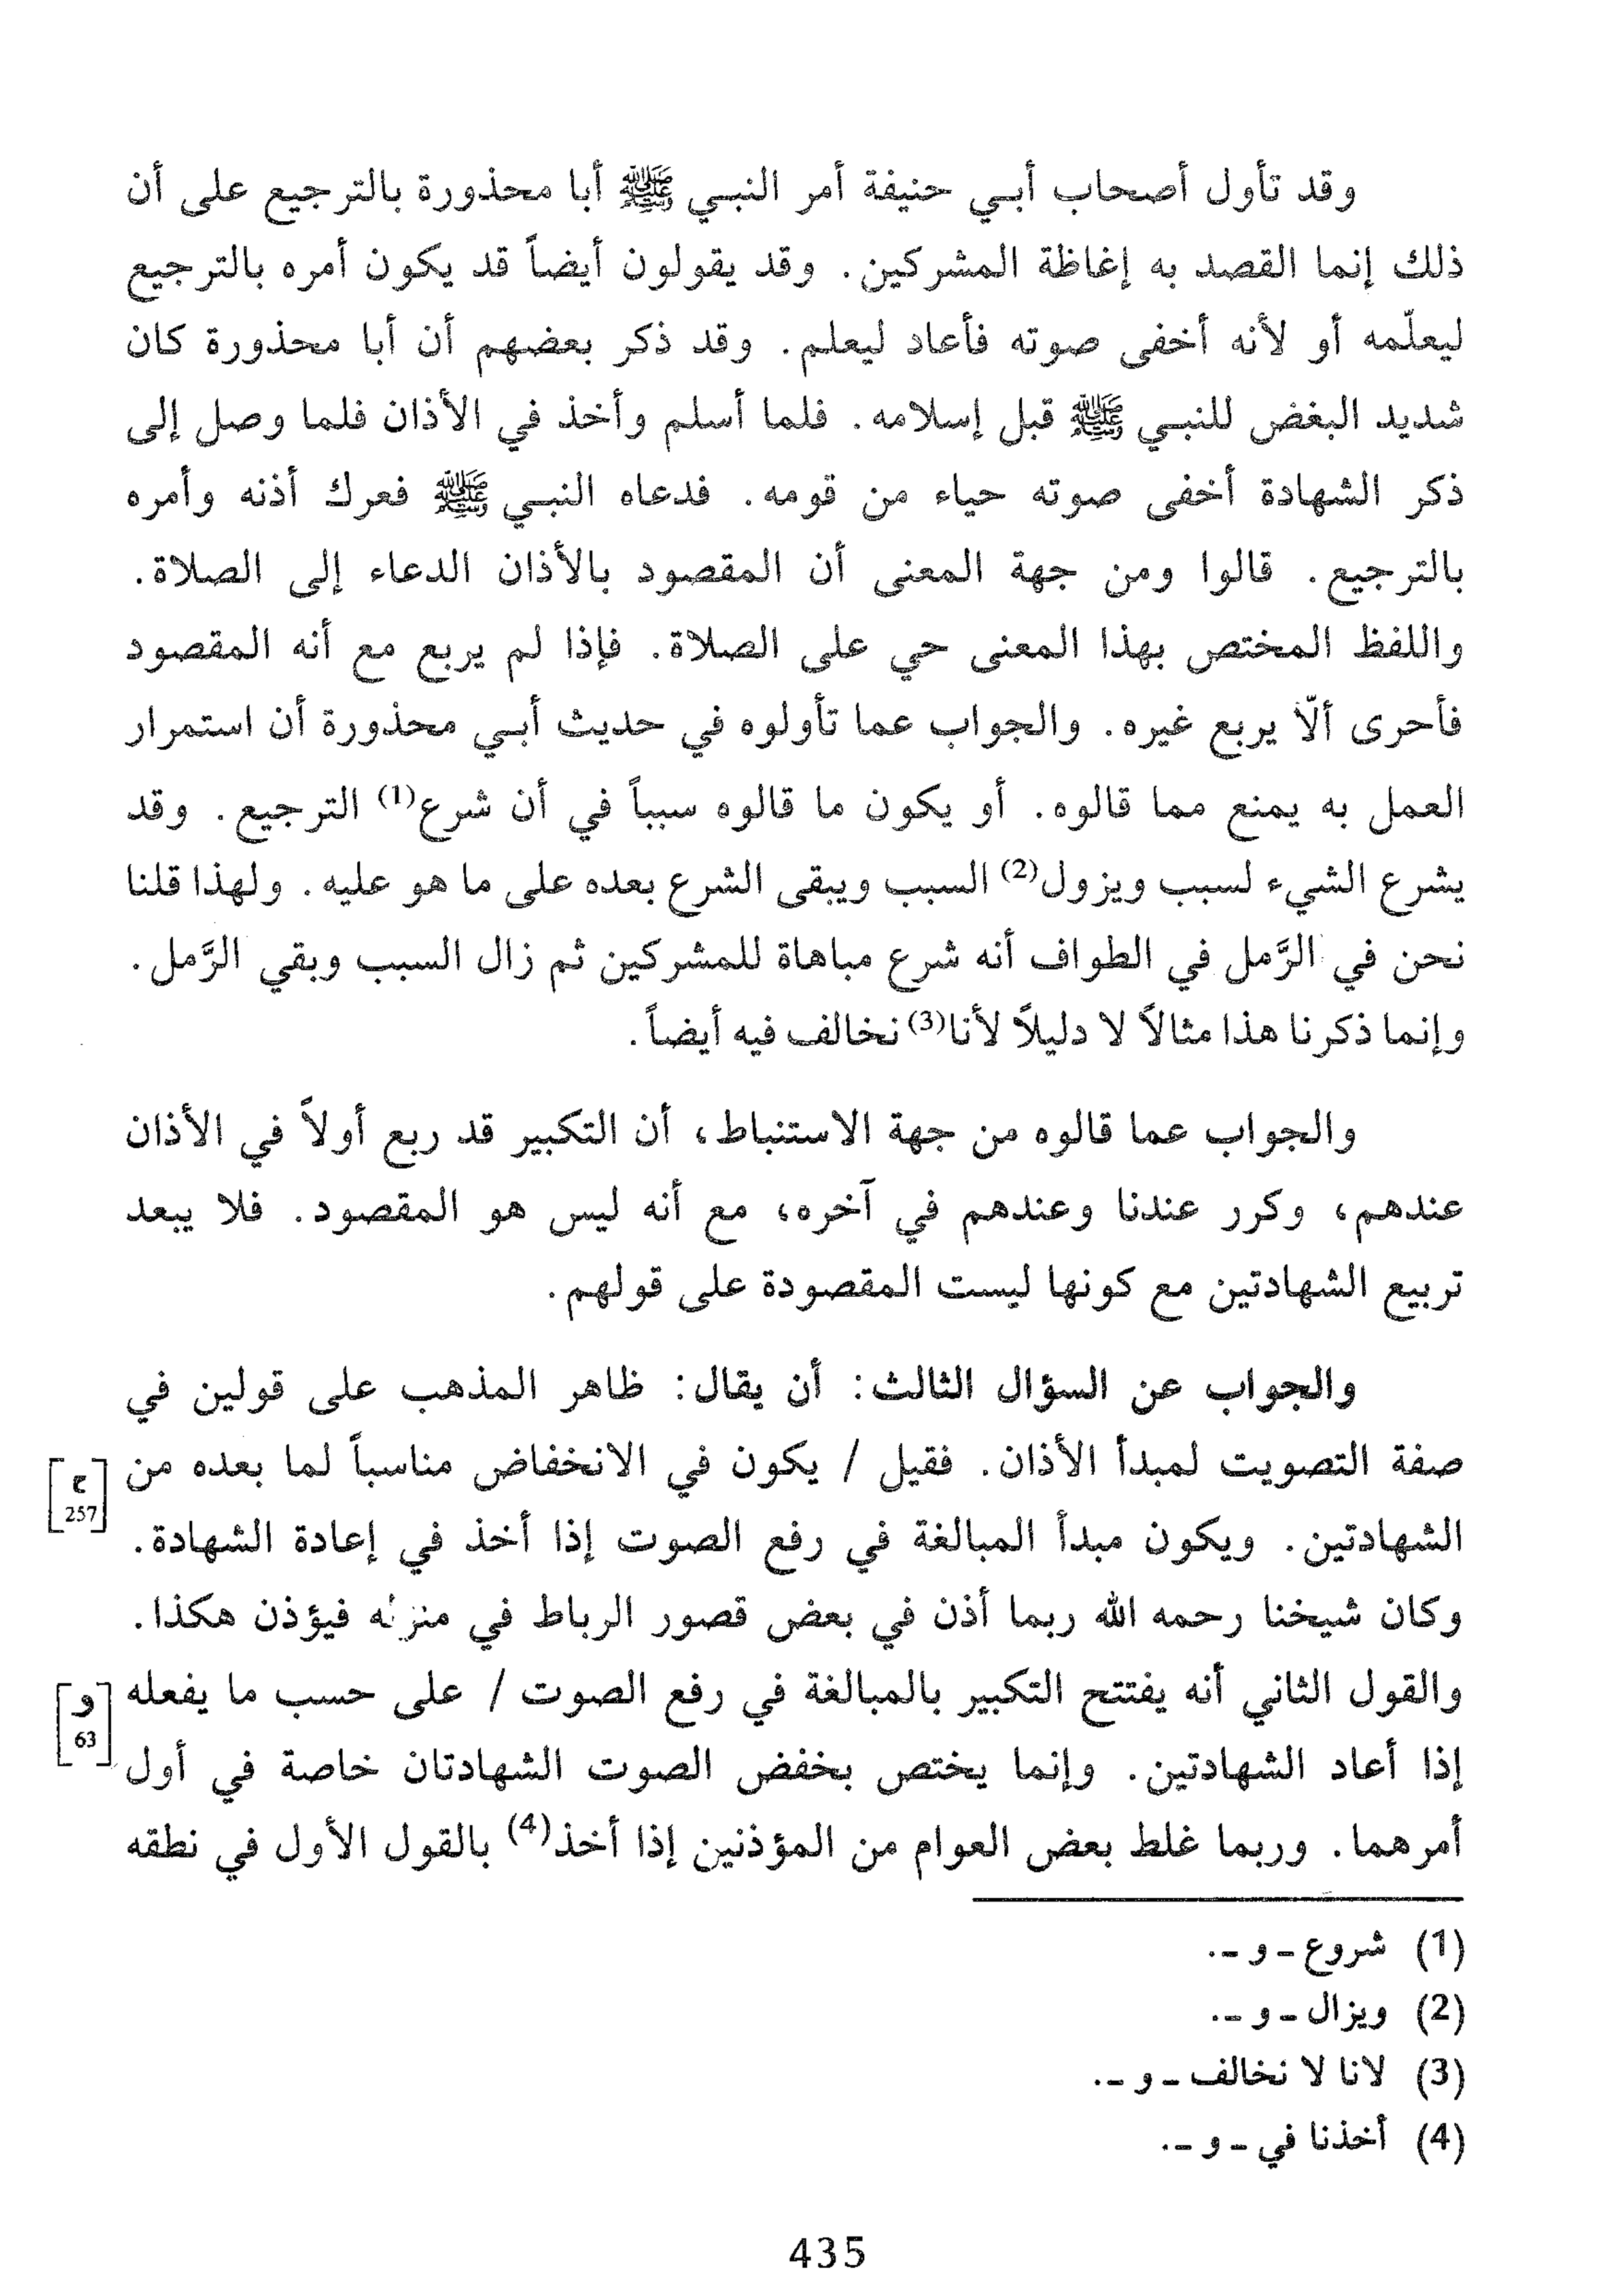 وقد تأول أصحاب أبي حنيفة أمر النبي ﷺ أبا محذورة بالترجيع على أن
ذلك إنما القصد به إغاظة المشركين. وقد يقولون أيضاً قد يكون أمره بالترجيع
ليعلّمه أو لأنه أخفى صوته فأعاد ليعلم. وقد ذكر بعضهم أن أبا محذورة كان
شديد البغض للنبي ﷺ قبل إسلامه. فلما أسلم وأخذ في الأذان فلما وصل إلى
ذكر الشهادة أخفى صوته حياء من قومه. فدعاه النبي ﷺ فعرك أذنه وأمره
بالترجيع. قالوا ومن جهة المعنى أن المقصود بالأذان الدعاء إلى الصلاة.
واللفظ المختص بهذا المعنى حي على الصلاة. فإذا لم يربع مع أنه المقصود
فأحرى ألاّ يربع غيره. والجواب عما تأولوه في حديث أبي محذورة أن استمرار
العمل به يمنع مما قالوه. أو يكون ما قالوه سبباً في أن شرع(1) الترجيع. وقد
يشرع الشيء لسبب ويزول(2) السبب ويبقى الشرع بعده على ما هو عليه. ولهذا قلنا
نحن في الرَّمل في الطواف أنه شرع مباهاة للمشركين ثم زال السبب وبقي الرَّمل.
وإنما ذكرنا هذا مثالاً لا دليلاً لأنا(3) نخالف فيه أيضاً.
والجواب عما قالوه من جهة الاستنباط، أن التكبير قد ربع أولاً في الأذان
عندهم، وكرر عندنا وعندهم في آخره، مع أنه ليس هو المقصود. فلا يبعد
تربيع الشهادتين مع كونها ليست المقصودة على قولهم.
والجواب عن السؤال الثالث: أن يقال: ظاهر المذهب على قولين في
صفة التصويت لمبدأ الأذان. فقيل / يكون في الانخفاض مناسباً لما بعده من
[ج 257]
الشهادتين. ويكون مبدأ المبالغة في رفع الصوت إذا أخذ في إعادة الشهادة.
وكان شيخنا رحمه الله ربما أذن في بعض قصور الرباط في منزله فيؤذن هكذا.
والقول الثاني أنه يفتتح التكبير بالمبالغة في رفع الصوت / على حسب ما يفعله
[و 63]
إذا أعاد الشهادتين. وإنما يختص بخفض الصوت الشهادتان خاصة في أول
أمرهما. وربما غلط بعض العوام من المؤذنين إذا أخذ(4) بالقول الأول في نطقه
(1) شروع ـ و ـ.
(2) ويزال ـ و ـ.
(3) لانا لا نخالف ـ و ـ.
(4) أخذنا في ـ و ـ.
435